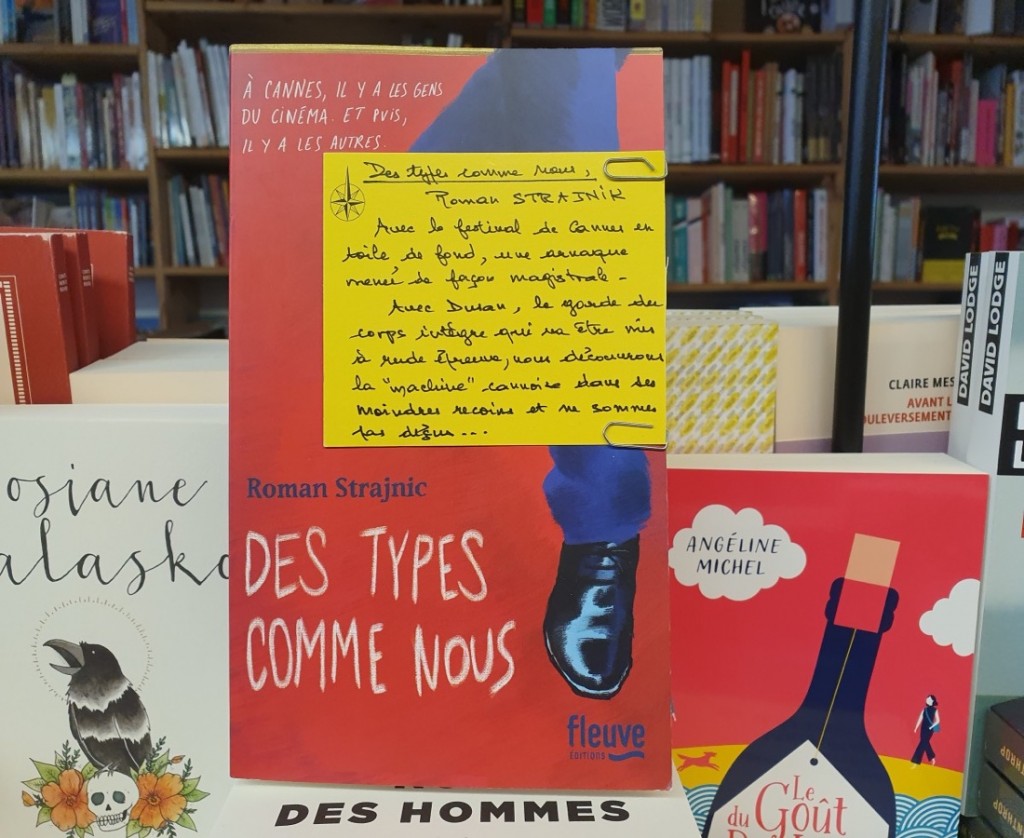 À CANNES, IL Y A LES GENS
DU CINÉMA. ET PUIS,
IL Y A LES AUTRES.
Des types comme nous,
Roman STRAJNIK
Avec le festival de Cannes en
toile de fond, une arnaque
menée de façon magistrale -
Avec Dusan, le garde du
corps intègre qui va être mis
à rude épreuve, nous découvrons
la "machine" cannoise dans ses
moindres recoins et ne sommes
pas déçus...
Roman Strajnic
DES TYPES
COMME NOUS
fleuve
ÉDITIONS
osiane
alasko
DES HOMMES
CLAIRE MES
AVANT L
OULEVERSEMENT
DAVID LODGE
DAVID LODGE
ANGÉLINE
MICHEL
Le
du Goût